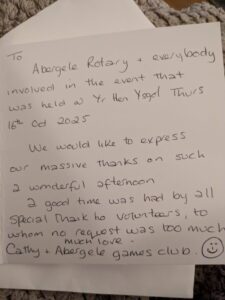 To
Abergele Rotary + everybody
involved in the event that
was held in Yr Hen Ysgol Thurs
16th Oct 2025
We would like to express
our massive thanks on such
a wonderful afternoon
a good time was had by all
Special Thank to volunteers, to
whom no request was too much
much love.
Cathy + Abergele games club.